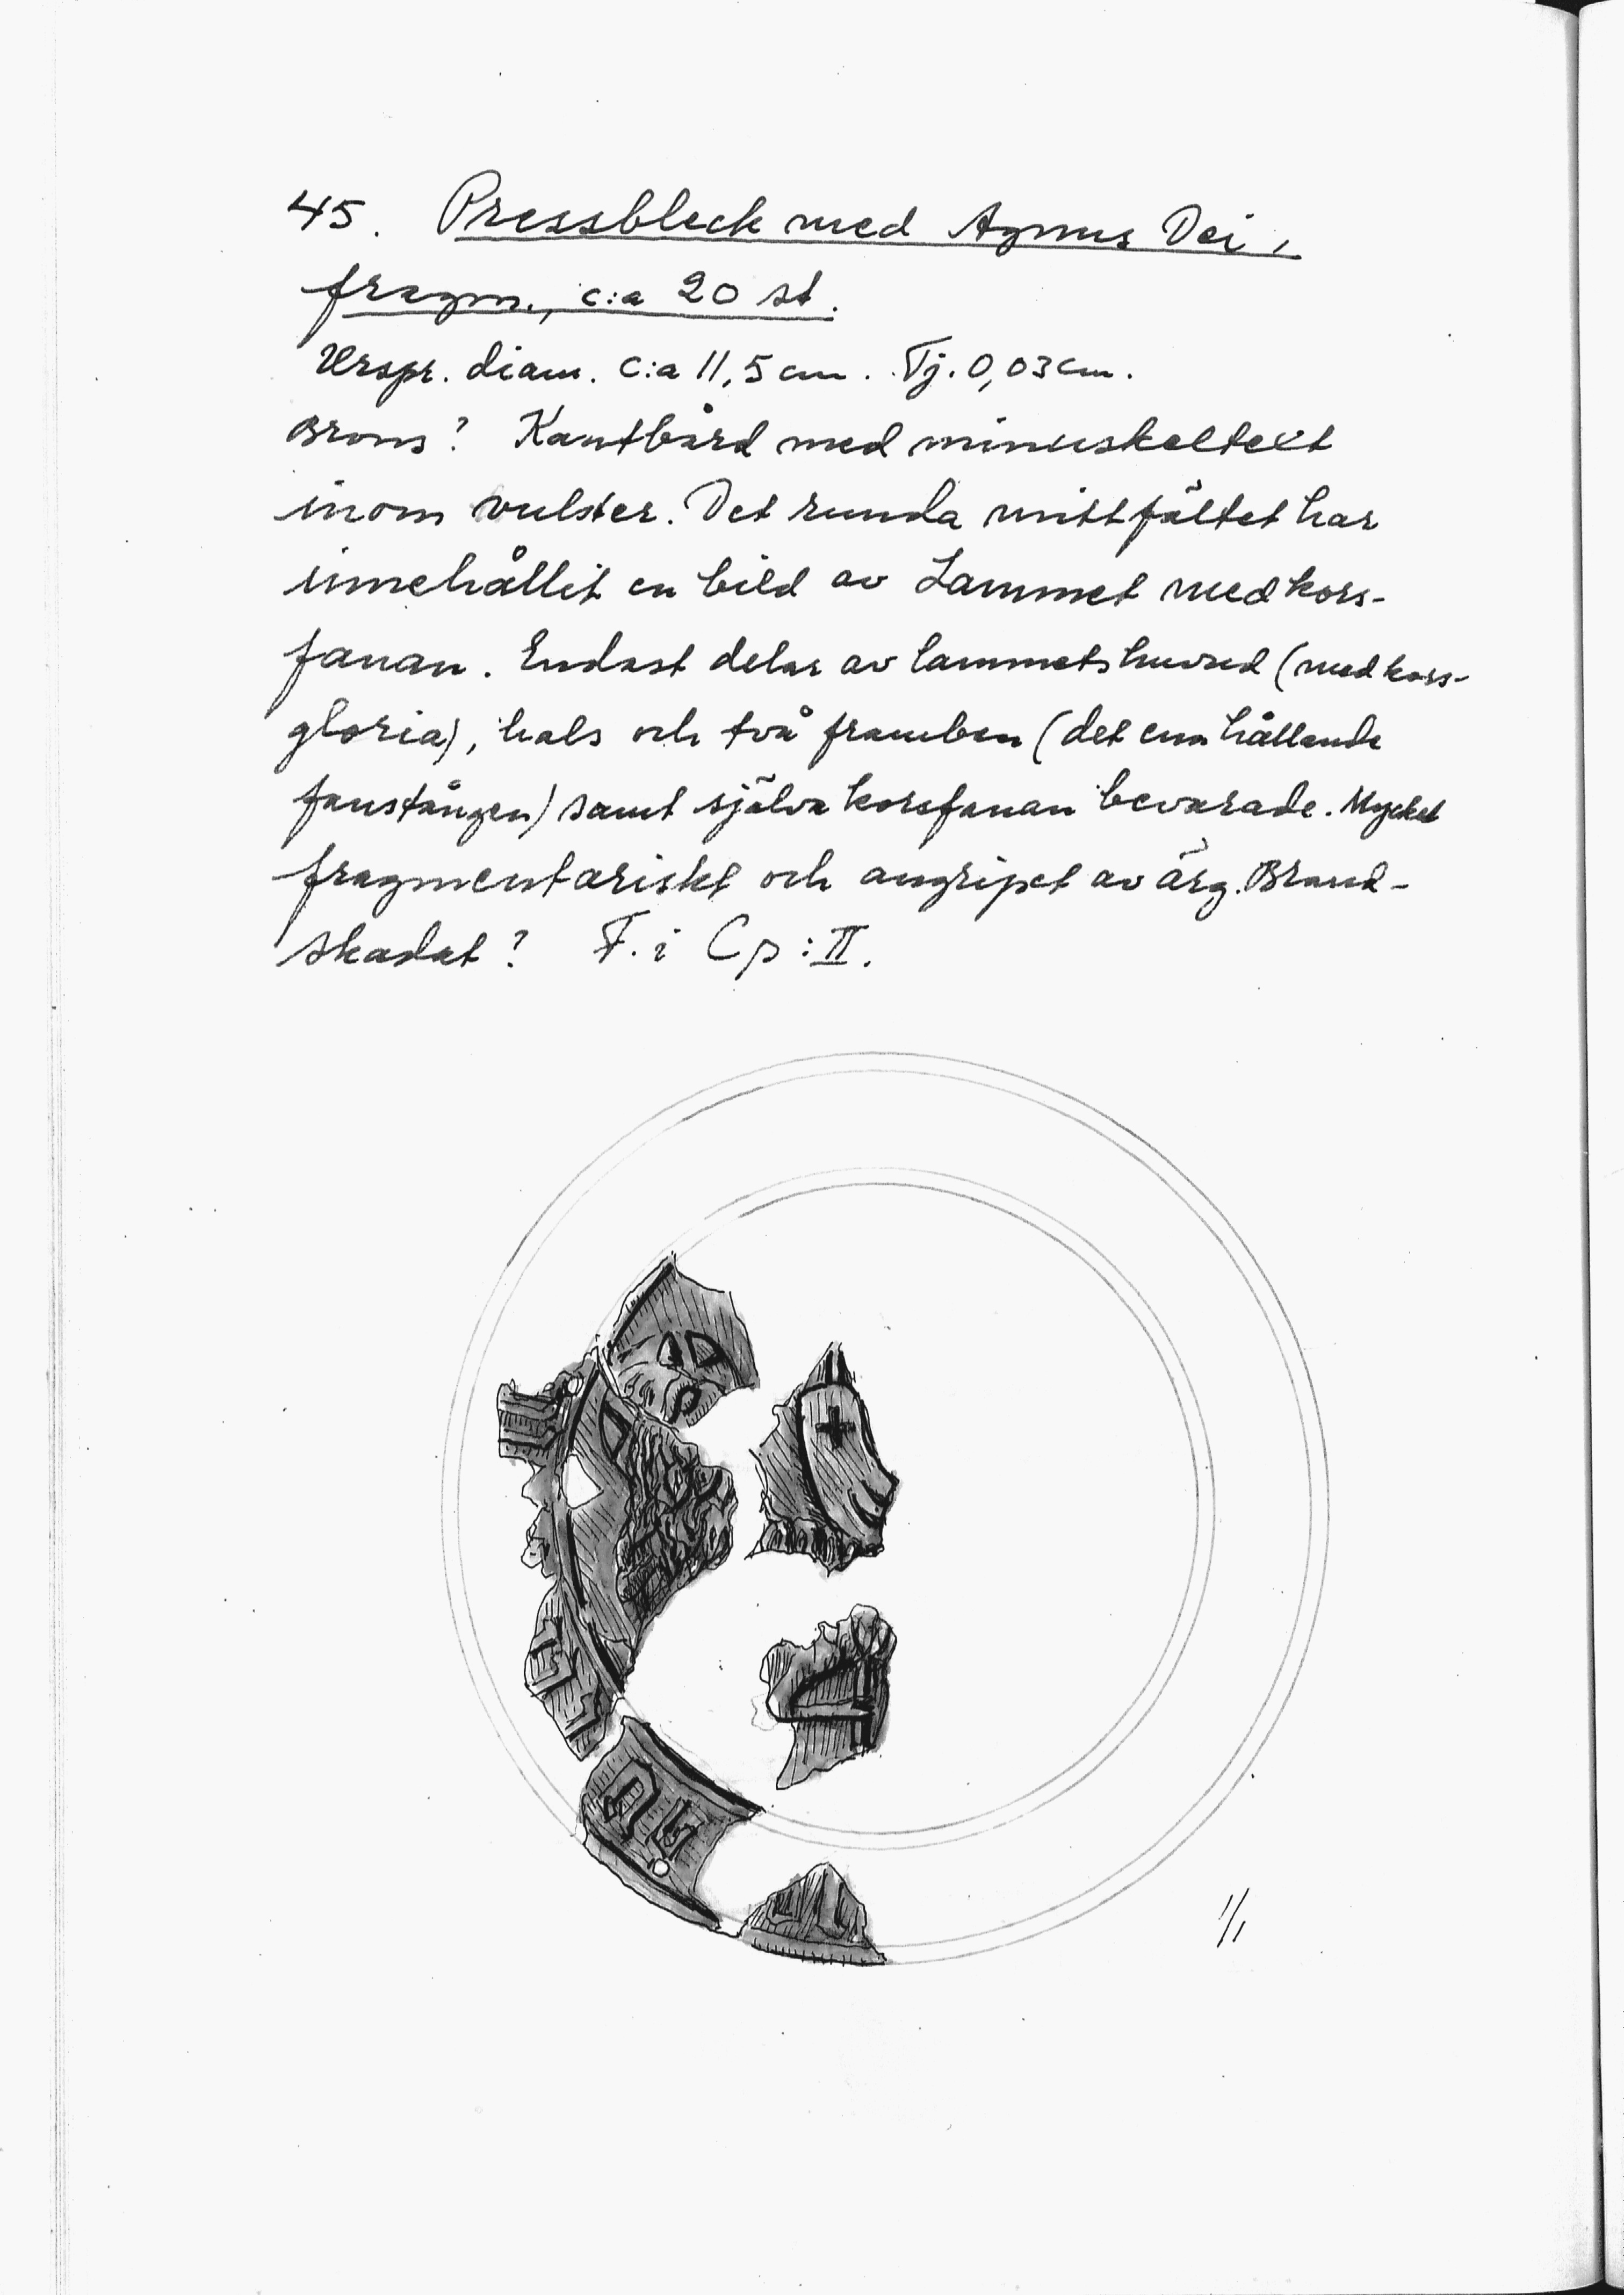 45. Pressbleck med Agnus Dei,
fragm., c:a 20 st.
Urspr. diam. c:a 11,5 cm. Tj. 0,03 cm.
Brons? Kantbård med minuskeltext
inom vulster. Det runda mittfältet har
innehållit en bild av Lammet med kors-
fanan. Endast delar av lammets huvud (med kors-
gloria), hals och två framben (det ena hållande
fanstången) samt själva korsfanan bevarade. Mycket
fragmentariskt och angripet av ärg. Brand-
skadat? F. i Cp:II.
1/1